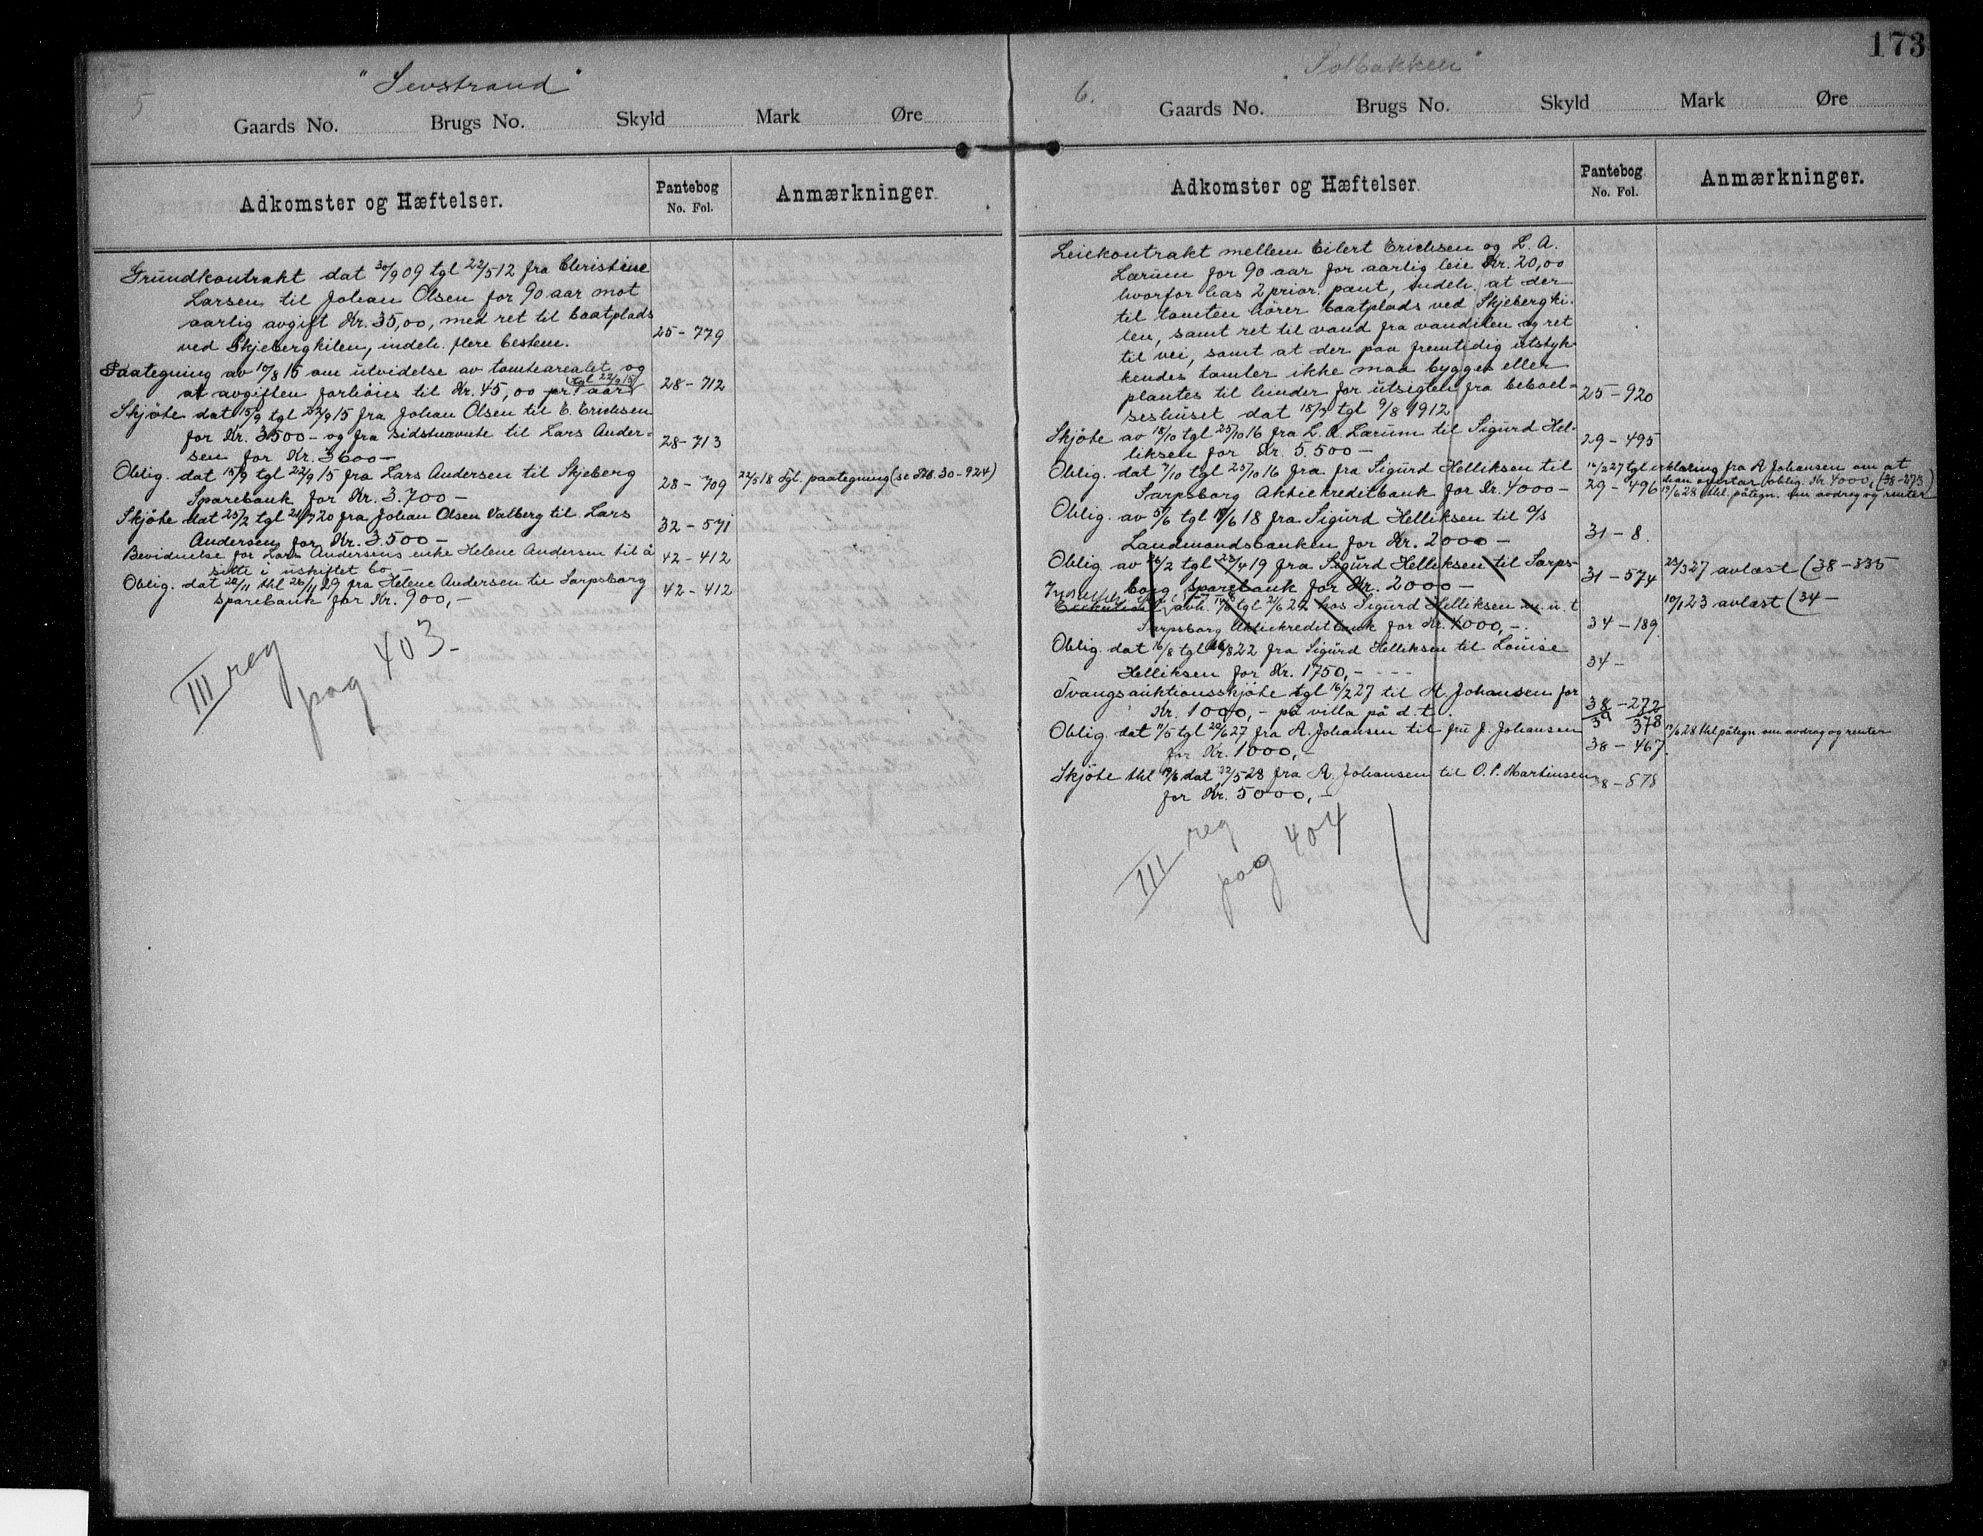 5
"Sevstrand"
Gaards No. Brugs No. Skyld Mark Øre
Adkomster og Hæftelser.
Pantebog
No. Fol.
Anmærkninger.
Grundkontrakt dat 30/9 09 tgl 22/5 12 fra Christine
Larsen til Johan Olsen for 90 aar mot
aarlig avgift Kr. 35,00, med ret til baatplads
ved Skjebergkilen, indeh. flere bestem. 25-779
Paategning av 10/8 15 om utvidelse av tomtearealet og
at avgiften forhöies til Kr. 45,00 pr. aar (tgl 22/9 15) 28-712
Skjöte dat 15/9 tgl 22/9 15 fra Johan Olsen til E. Erichsen
for Kr. 3500- og fra sidstnævnte til Lars Ander-
sen for Kr. 3600- 28-713
Oblig. dat 15/9 tgl 22/9 15 fra Lars Andersen til Skjeberg
Sparebank for Kr. 3.700- 28-709 22/5 18 tgl. paategning (se Pb. 30-924)
Skjöte dat 25/2 tgl 21/7 20 fra Johan Olsen Valberg til Lars
Andersen for Kr. 3.500- 32-571
Bevidnelse for Lars Andersens enke Helene Andersen til å
sitte i uskiftet bo,- 42-412
Oblig. dat 22/11 thl 26/11 29 fra Helene Andersen til Sarpsborg
sparebank for Kr. 900,- 42-412
III reg
pag 403.
173
6.
"Solbakken"
Gaards No. Brugs No. Skyld Mark Øre
Adkomster og Hæftelser.
Pantebog
No. Fol.
Anmærkninger.
Leiekontrakt mellem Eilert Erichsen og L. A.
Lærum for 90 aar for aarlig leie Kr. 20,00
hvorfor has 2 prior. pant, indeh. at der
til tomten hører baatplads ved Skjebergki-
len, samt ret til vand fra vandilen og ret
til vei, samt at der paa fremtidig utstyk-
kendes tomter ikke maa bygges eller
plantes til hinder for utsigten fra beboel-
seshuset dat 18/7 tgl 9/8 1912 25-920
Skjöte av 18/10 tgl 25/10 16 fra L. A. Lærum til Sigurd Hel-
liksen for Kr. 5.500- 29-495
Oblig. dat 7/10 tgl 25/10 16 fra fra Sigurd Helliksen til
Sarpsborg Aktiekreditbank for Kr. 4000- 29-496
16/2 27 tgl erklæring fra A Johansen om at
han overtar oblig. Kr 4000, (38-273)
19/6 28 thl. påtegn. om avdrag og renter
Oblig. av 5/6 tgl 18/6 18 fra Sigurd Helliksen til A/S
Landmandsbanken for Kr. 2000- 31-8.
Oblig av 26/2 tgl 23/4 19 fra Sigurd Helliksen til Sarps-
borg sparebank for Kr. 2000- 31-574 23/3 27 avlæst (38-335
avh. 14/6 tgl 21/6 22 hos Sigurd Helliksen m.u.t
Sarpsborg Aktiekreditbank for Kr. 4000,-. 34-189. 10/1 23 avlæst (34-
Oblig dat 16/8 tgl 22 fra Sigurd Helliksen til Louise
Helliksen for Kr. 1750,- 34-
Tvangsauktionsskjöte tgl 16/2 27 til A. Johansen for
Kr. 1000,- på villa på d.t. 38-272
39 378
Oblig. dat 11/5 tgl 22/6 27 fra A. Johansen til fru J. Johansen
for Kr. 1000,- 38-467. 19/6 28 thl påtegn. om avdrag og renter
Skjöte thl 19/6 dat 22/5 28 fra A. Johansen til O. P. Martinsen
for Kr. 5000,- 38-878
III reg
pag 404